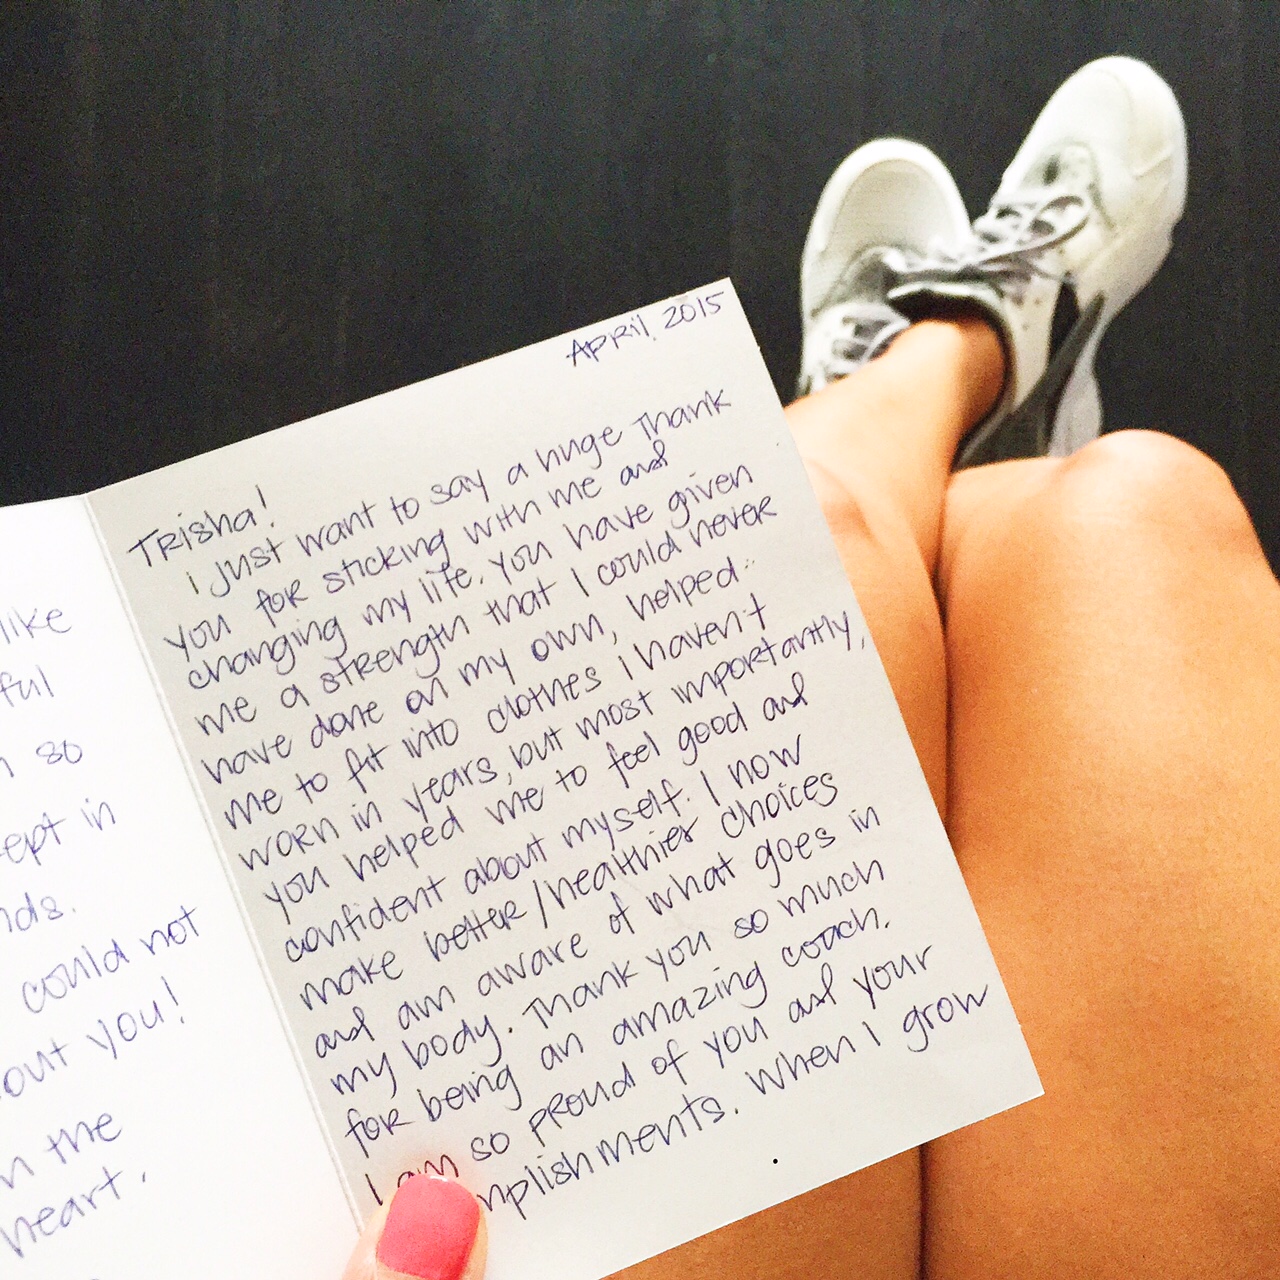 like
ful
so
ept in
nds.
could not
out you!
n the
heart.
April 2015
Trisha!
I just want to say a huge thank
you for sticking with me and
changing my life. You have given
me a strength that I could never
have done on my own, helped
me to fit into clothes I haven't
worn in years, but most importantly,
you helped me to feel good and
confident about myself. I now
make better/healthier choices
and am aware of what goes in
my body. Thank you so much
for being an amazing coach.
I am so proud of you and your
mplishments. When I grow